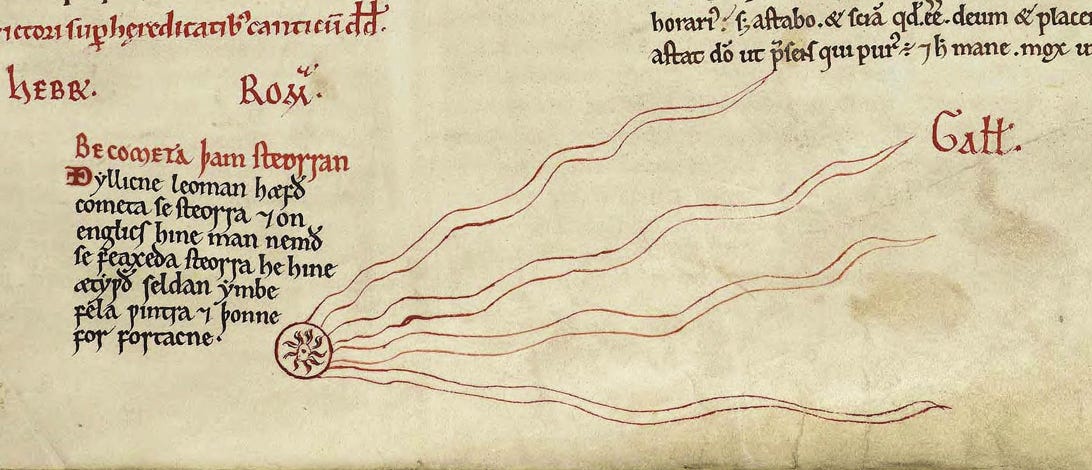 ictori sup hereditatib᾽ canticū dd.
borari᾽. s; astabo. & sciā qđ.ēē. deum & place
astat dō ut p̄sens qui pur᾽ ⁊ h̄ mane. mox u
HEBR.
ROM.
Gall.
Be cometa þam steorran
Ðyllicne leoman hæfð
cometa se steorra ⁊ on
englis hine man nemð
se feaxeda steorra he hine
ætẏƿð seldan ẏmbe
fela ƿintra ⁊ þonne
for fortacne.